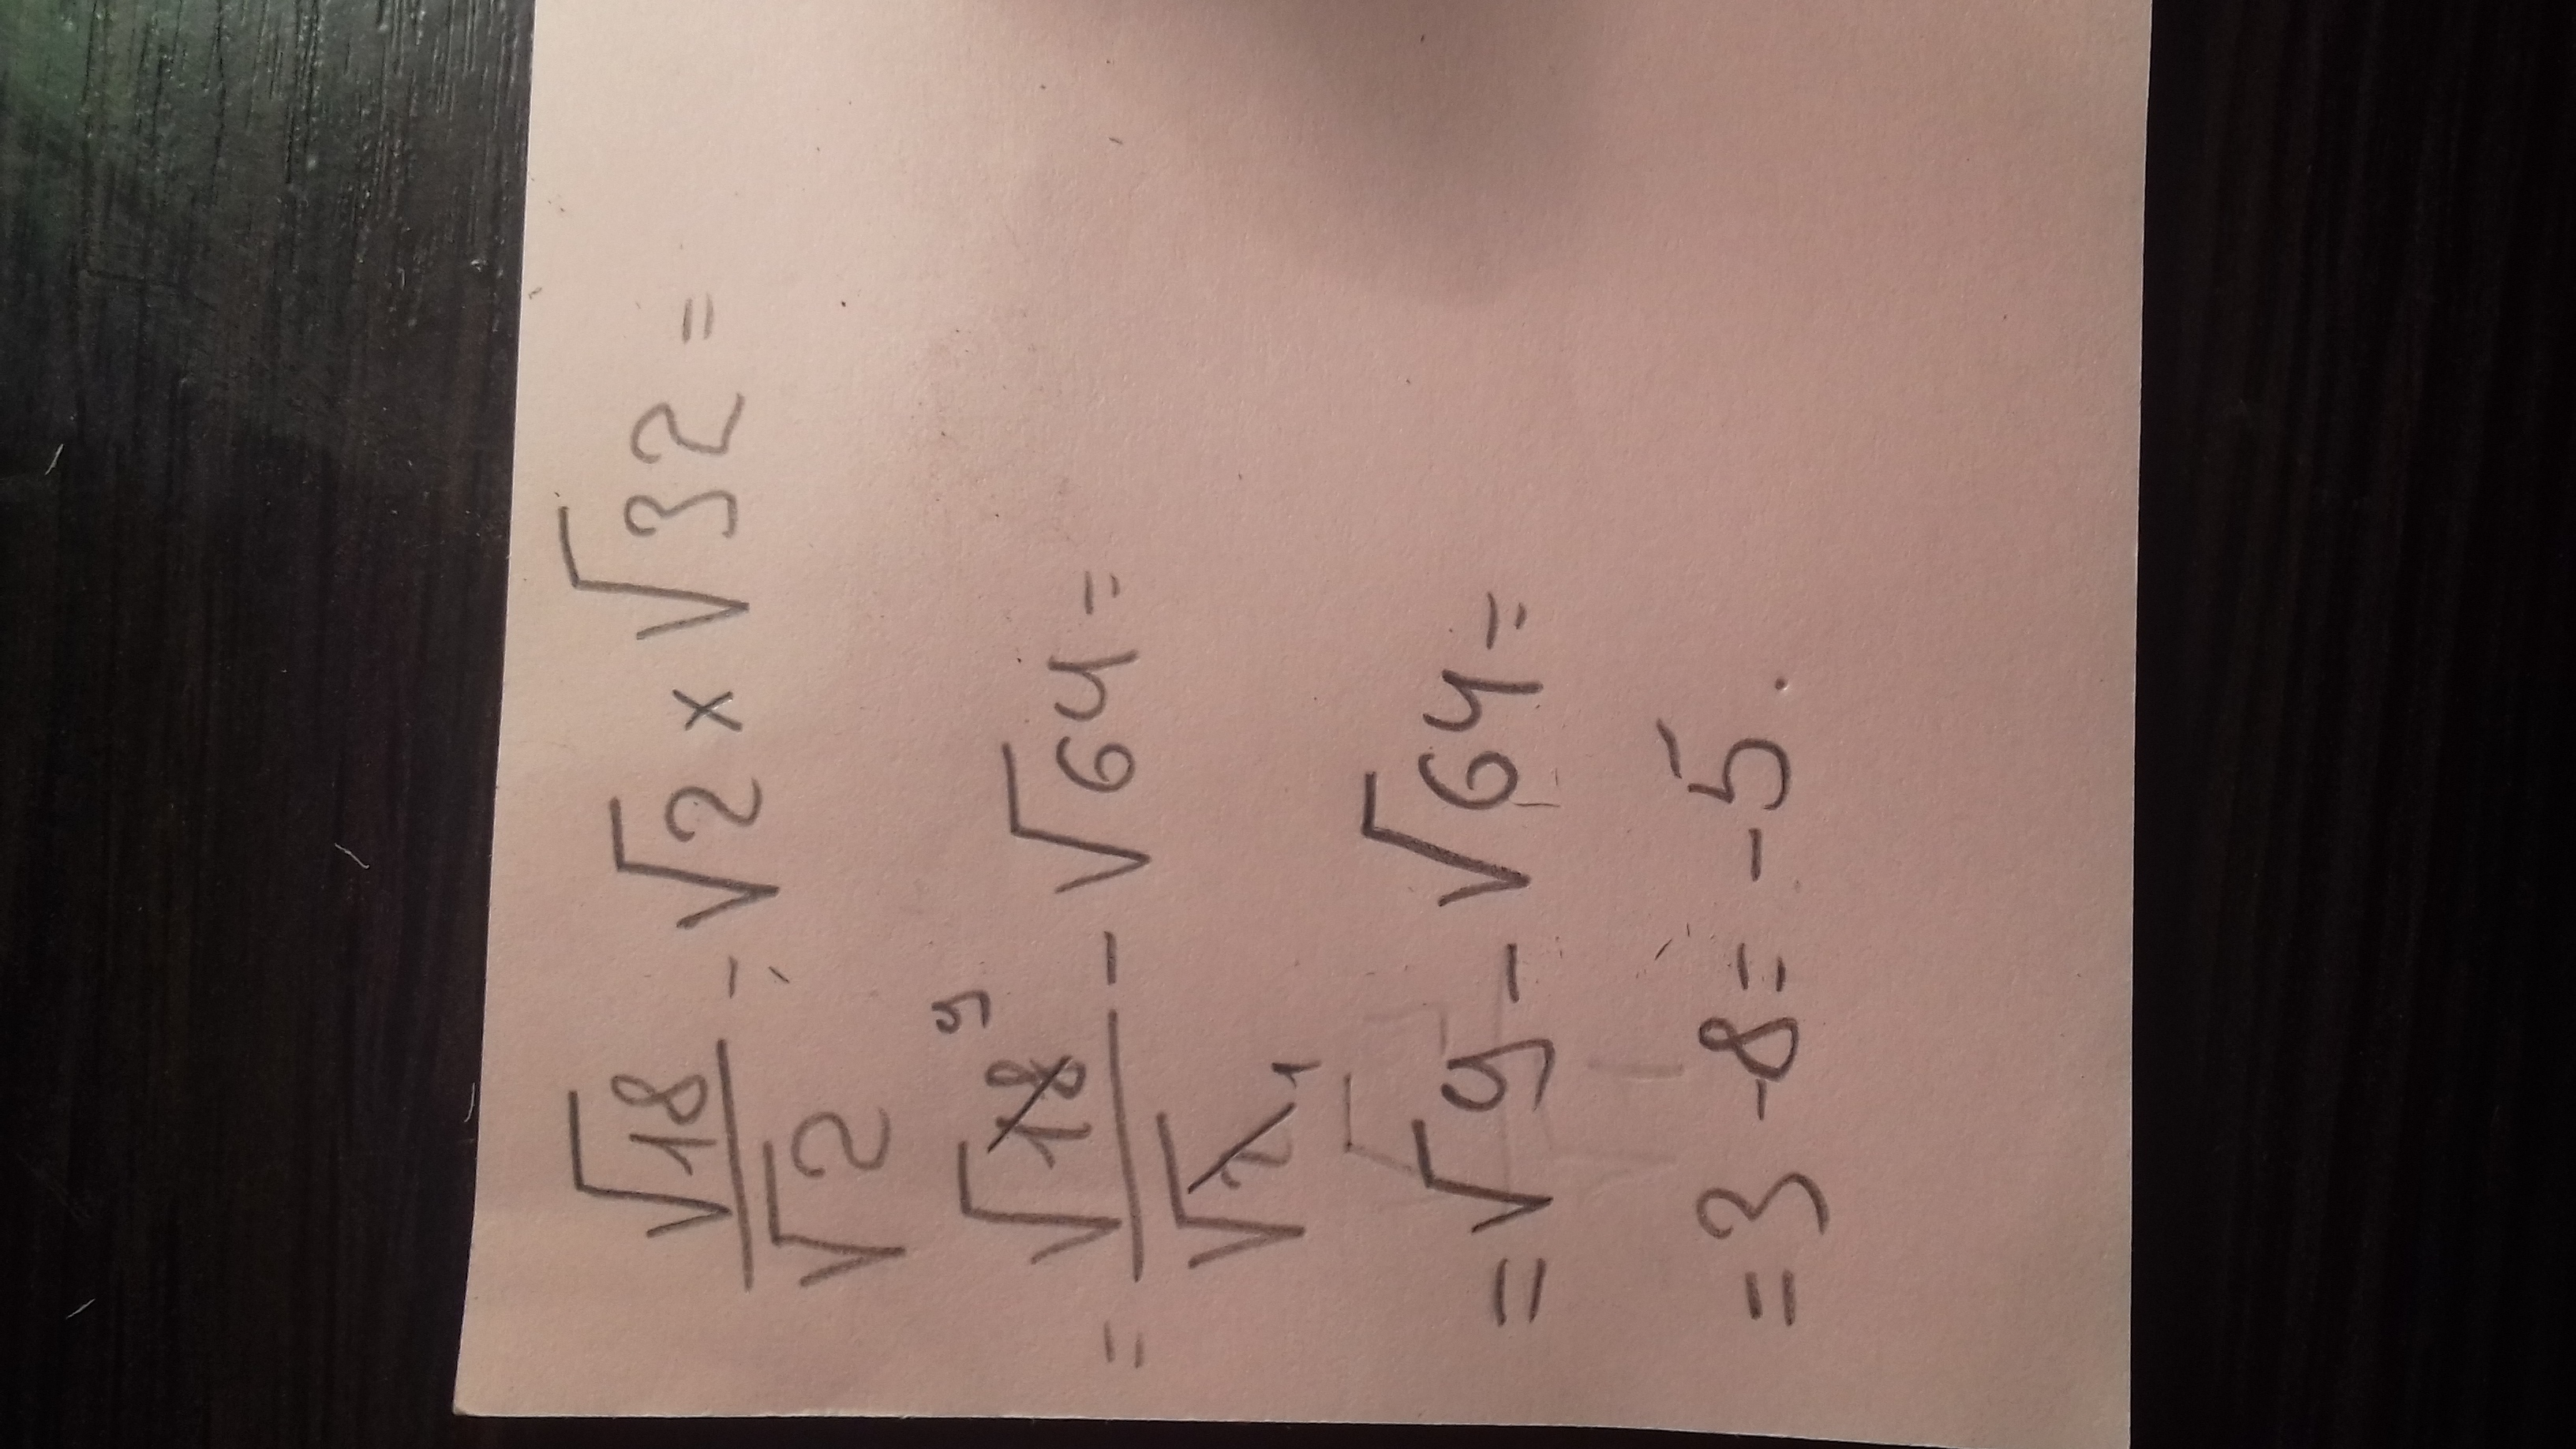 √18/√2 - √2 × √32 =
= √18 9/√2 1 - √64 =
= √9 - √64 =
= 3 - 8 = -5.